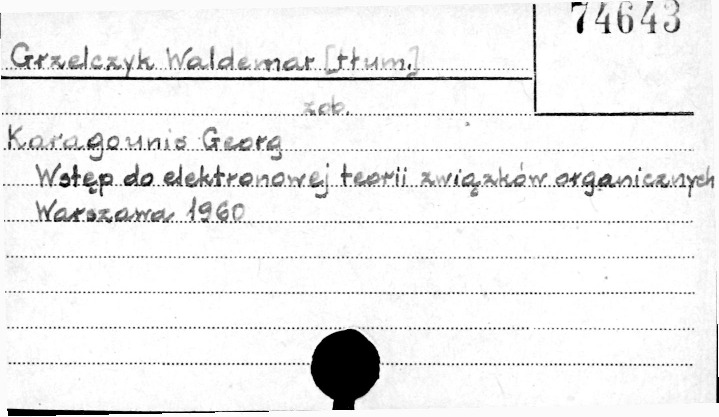 74643
Grzelczyk Waldemar [tłum.]
zob.
Karagounis Georg
Wstęp do elektronowej teorii związków organicznych
Warszawa 1960